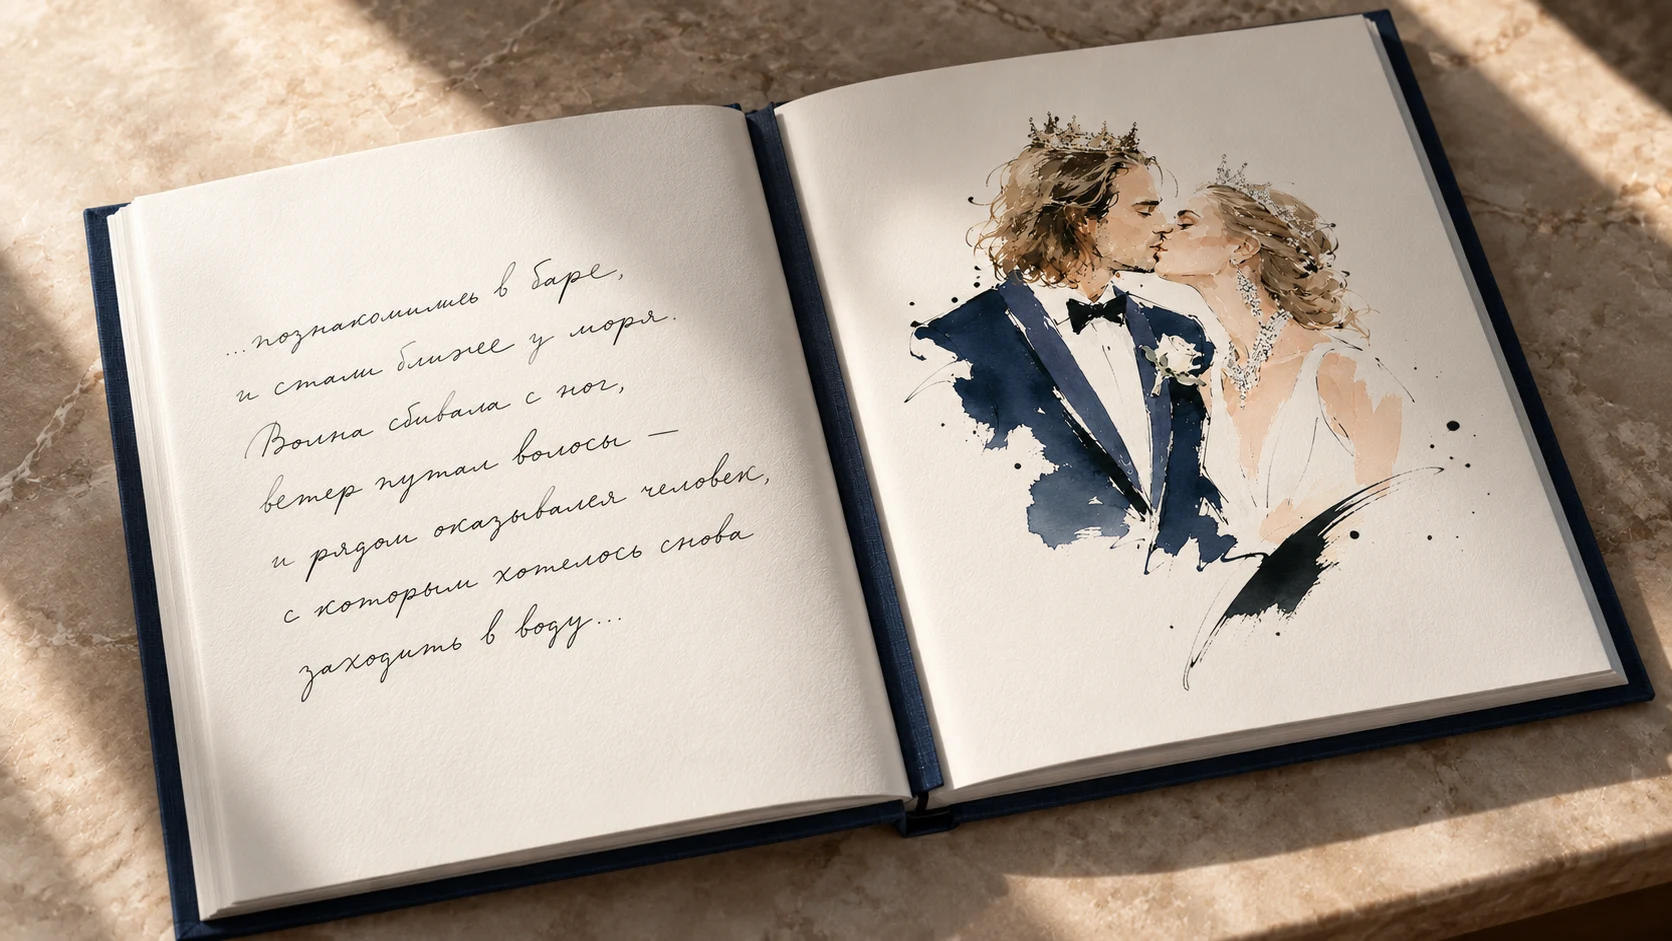 ...познакомились в баре,
и стали ближе у моря.
Волна сбивала с ног,
ветер путал волосы —
и рядом оказывался человек,
с которым хотелось снова
заходить в воду...